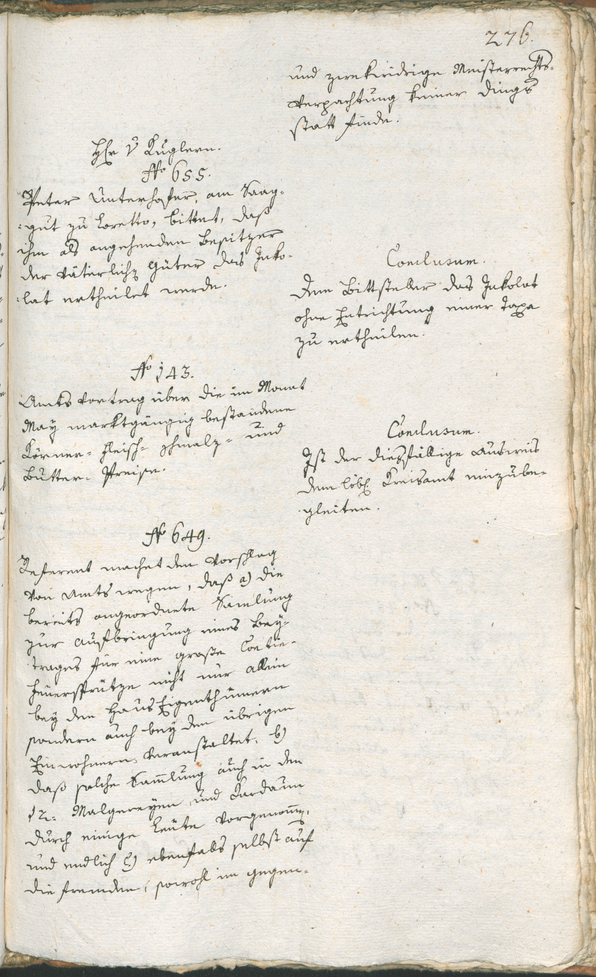 276.
und zweckwidrige Meisterrechts-
Verpachtung keiner dings
statt finde.
Hr. v. Kuglern.
No 655.
Peter Unterhofer, am Saag-
gut zu Loretto, bittet, daß
ihm als angehenden Besitzer
der väterlichen Güter das Inko-
lat ertheilet werde.
Conclusum.
Dem Bittsteller das Inkolat
ohne Entrichtung einer Taxe
zu ertheilen.
No 143.
Amtsvortrag über die im Monat
May marktgängig bestandene
Körner- Fleisch- Schmalz- und
Butter-Preise.
Conclusum.
Ist der diesfällige Ausweis
dem löbl. Kreisamt einzube-
gleiten.
No 649.
Referent machet den Vorschlag
von Amts wegen, daß a) die
bereits angeordnete Samlung
zur Aufbringung eines Bey-
trages für eine große
Feuersprütze nicht nur allein
bey den HausEigenthümern
sondern auch bey den übrigen
Einwohnern veranstaltet, b)
daß solche Samlung auch in den
12. Malgreyen und Kardaun
durch einige Leute vorgenomen,
und endlich c) ebenfals selbst auf
die Fremden, sowohl im gegen-